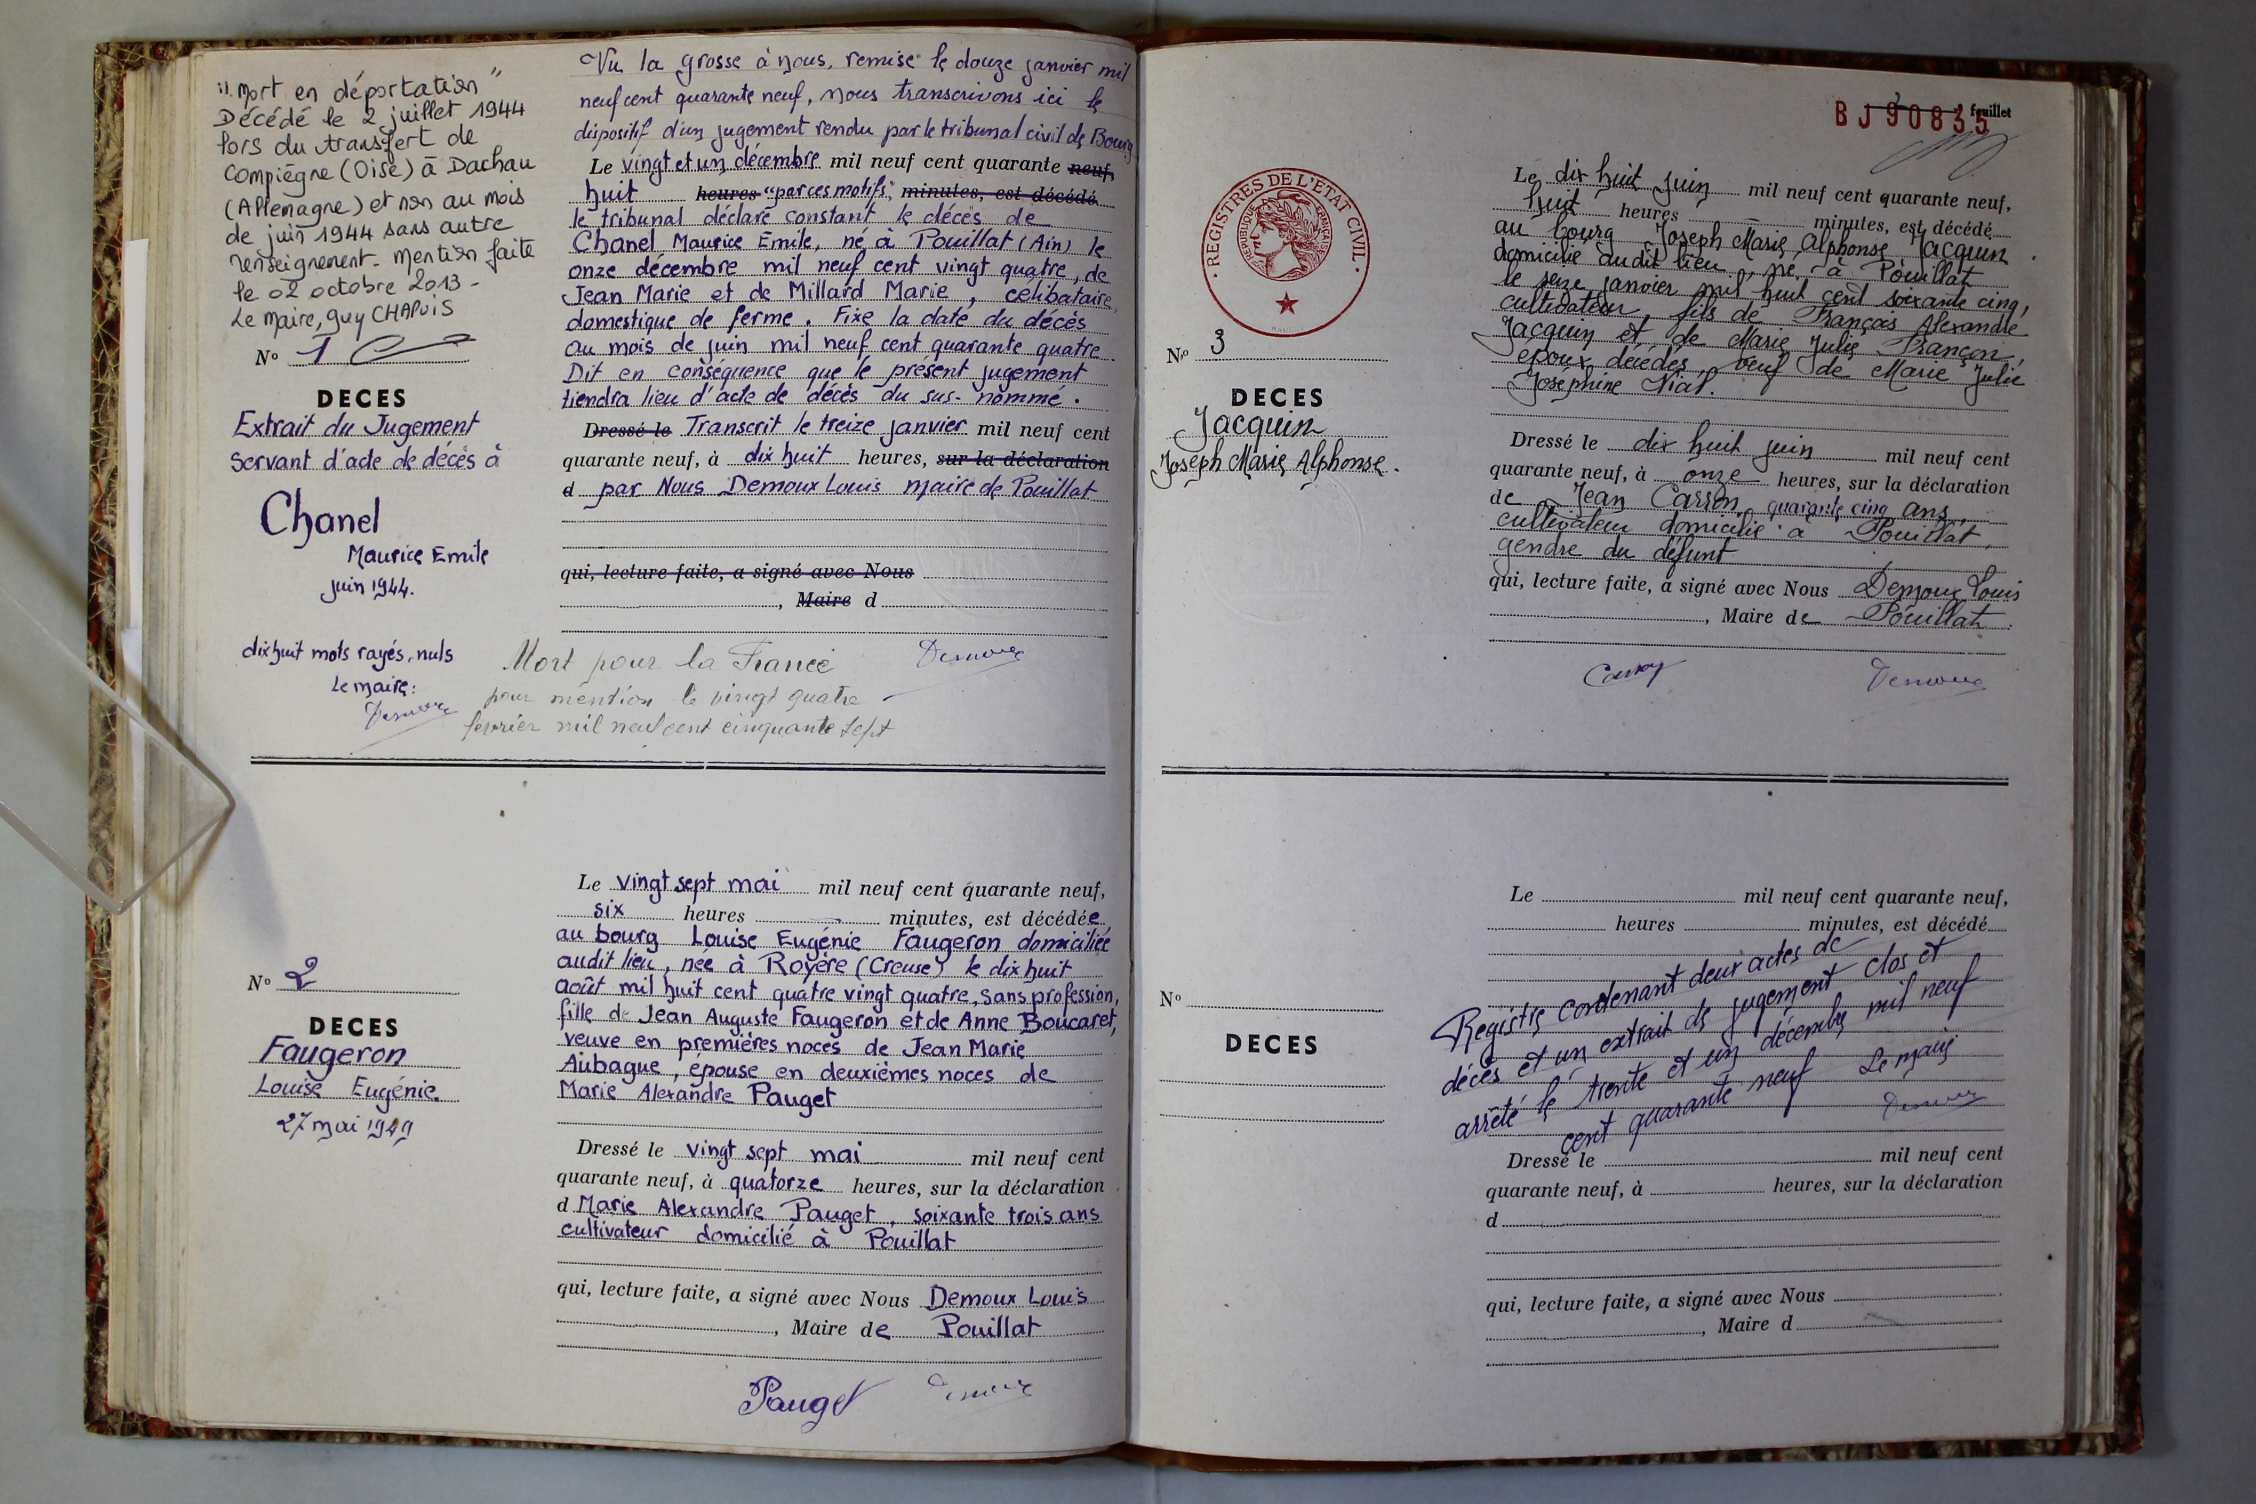 "Mort en déportation"
Décédé le 2 juillet 1944
lors du transfert de
Compiègne (Oise) à Dachau
(Allemagne) et non au mois
de juin 1944 sans autre
renseignement. Mention faite
le 02 octobre 2013 -
Le Maire, Guy CHAPUIS
N° 1
DECES
Extrait du Jugement
servant d'acte de décès à
Chanel
Maurice Emile
juin 1944.
dix huit mots rayés, nuls
Le maire:
Demoux
Vu la grosse à nous, remise le douze janvier mil
neuf cent quarante neuf, nous transcrivons ici le
dispositif d'un jugement rendu par le tribunal civil de Bourg
Le vingt et un décembre mil neuf cent quarante neuf,
huit heures "par ces motifs", minutes, est décédé
le tribunal déclare constant le décès de
Chanel Maurice Emile, né à Pouillat (Ain) le
onze décembre mil neuf cent vingt quatre, de
Jean Marie et de Millard Marie, célibataire,
domestique de ferme. Fixe la date du décès
au mois de juin mil neuf cent quarante quatre.
Dit en conséquence que le présent jugement
tiendra lieu d'acte de décès du sus-nommé.
Dressé le Transcrit le treize janvier mil neuf cent
quarante neuf, à dix huit heures, sur la déclaration
d par Nous Demoux Louis maire de Pouillat
qui, lecture faite, a signé avec Nous
, Maire d
Mort pour la France
Demoux
pour mention le vingt quatre
février mil neuf cent cinquante sept
N° 2
DECES
Faugeron
Louise Eugénie
27 mai 1949
Le vingt sept mai mil neuf cent quarante neuf,
six heures minutes, est décédée
au bourg Louise Eugénie Faugeron domiciliée
audit lieu, née à Royère (Creuse) le dix huit
août mil huit cent quatre vingt quatre, sans profession,
fille de Jean Auguste Faugeron et de Anne Boucaret,
veuve en premières noces de Jean Marie
Aubague, épouse en deuxièmes noces de
Marie Alexandre Pauget
Dressé le vingt sept mai mil neuf cent
quarante neuf, à quatorze heures, sur la déclaration
d Marie Alexandre Pauget, soixante trois ans
cultivateur domicilié à Pouillat
qui, lecture faite, a signé avec Nous Demoux Louis
, Maire de Pouillat
Pauget Demoux
BJ90835
feuillet
REGISTRES DE L'ETAT CIVIL
REPUBLIQUE FRANÇAISE
N° 3
DECES
Jacquin
Joseph Marie Alphonse.
Le dix huit juin mil neuf cent quarante neuf,
huit heures minutes, est décédé
au bourg Joseph Marie Alphonse Jacquin
domicilié audit lieu, né à Pouillat
le seize janvier mil huit cent soixante cinq,
cultivateur, fils de François Alexandre
Jacquin et de Marie Julie Françon,
époux décédés, veuf de Marie Julie
Joséphine Nial.
Dressé le dix huit juin mil neuf cent
quarante neuf, à onze heures, sur la déclaration
de Jean Carron, quarante cinq ans,
cultivateur domicilié à Pouillat,
gendre du défunt
qui, lecture faite, a signé avec Nous Demoux Louis
, Maire de Pouillat.
Demoux
N°
DECES
Le mil neuf cent quarante neuf,
heures minutes, est décédé
Registre contenant deux actes de
décès et un extrait de jugement clos et
arrêté le trente et un décembre mil neuf
cent quarante neuf Le maire
Demoux
Dressé le mil neuf cent
quarante neuf, à heures, sur la déclaration
d
qui, lecture faite, a signé avec Nous
, Maire d